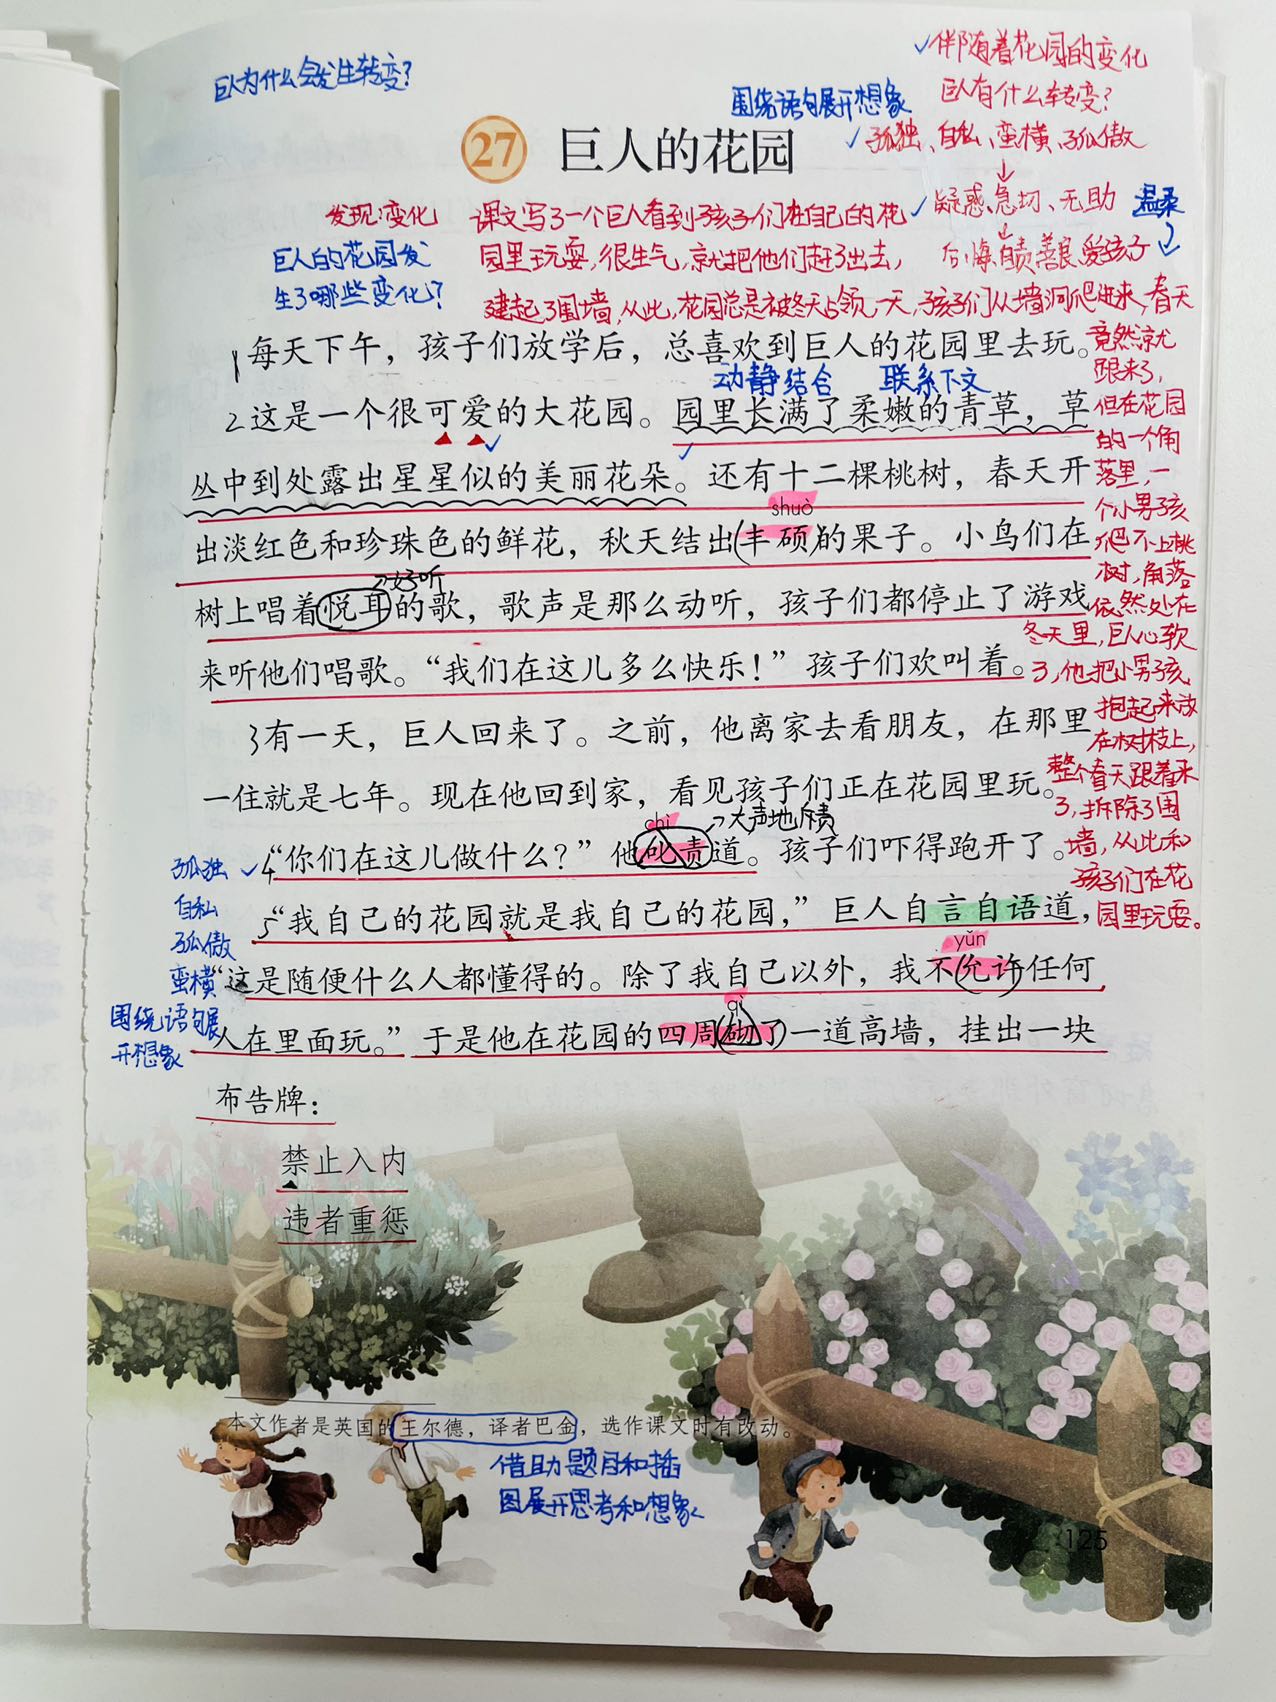 巨人为什么会发生转变？
✓伴随着花园的变化
巨人有什么转变？
围绕语句展开想象
✓孤独、自私、蛮横、孤傲
↓
27 巨人的花园
✓疑惑、急切、无助 温柔
↓
后悔 自责 善良 爱孩子
发现：变化
巨人的花园发
生了哪些变化？
课文写了一个巨人看到孩子们在自己的花
园里玩耍，很生气，就把他们赶了出去，
建起了围墙，从此，花园总是被冬天占领，一天，孩子们从墙洞爬进来，春天
竟然就
跟来了，
但在花园
的一个角
落里，一
个小男孩
爬不上桃
树，角落
依然处在
冬天里，巨人心软
了，他把小男孩
抱起来放
在树枝上，
整个春天跟着来
了，拆除了围
墙，从此和
孩子们在花
园里玩耍。
1每天下午，孩子们放学后，总喜欢到巨人的花园里去玩。
动静结合 联系下文
2这是一个很可爱的大花园。园里长满了柔嫩的青草，草
丛中到处露出星星似的美丽花朵。还有十二棵桃树，春天开
shuò
出淡红色和珍珠色的鲜花，秋天结出(丰硕)的果子。小鸟们在
→好听
树上唱着悦耳的歌，歌声是那么动听，孩子们都停止了游戏
来听他们唱歌。“我们在这儿多么快乐！”孩子们欢叫着。
3有一天，巨人回来了。之前，他离家去看朋友，在那里
一住就是七年。现在他回到家，看见孩子们正在花园里玩。
chì →大声地斥责
4“你们在这儿做什么？”他叱责道。孩子们吓得跑开了。
孤独 ✓
自私
孤傲
蛮横
5“我自己的花园就是我自己的花园，”巨人自言自语道，
yǔn
“这是随便什么人都懂得的。除了我自己以外，我不(允许)任何
qì
人在里面玩。”于是他在花园的四周(砌了)一道高墙，挂出一块
围绕语句展
开想象
布告牌：
禁止入内
违者重惩
本文作者是英国的王尔德，译者巴金，选作课文时有改动。
借助题目和插
图展开思考和想象
125